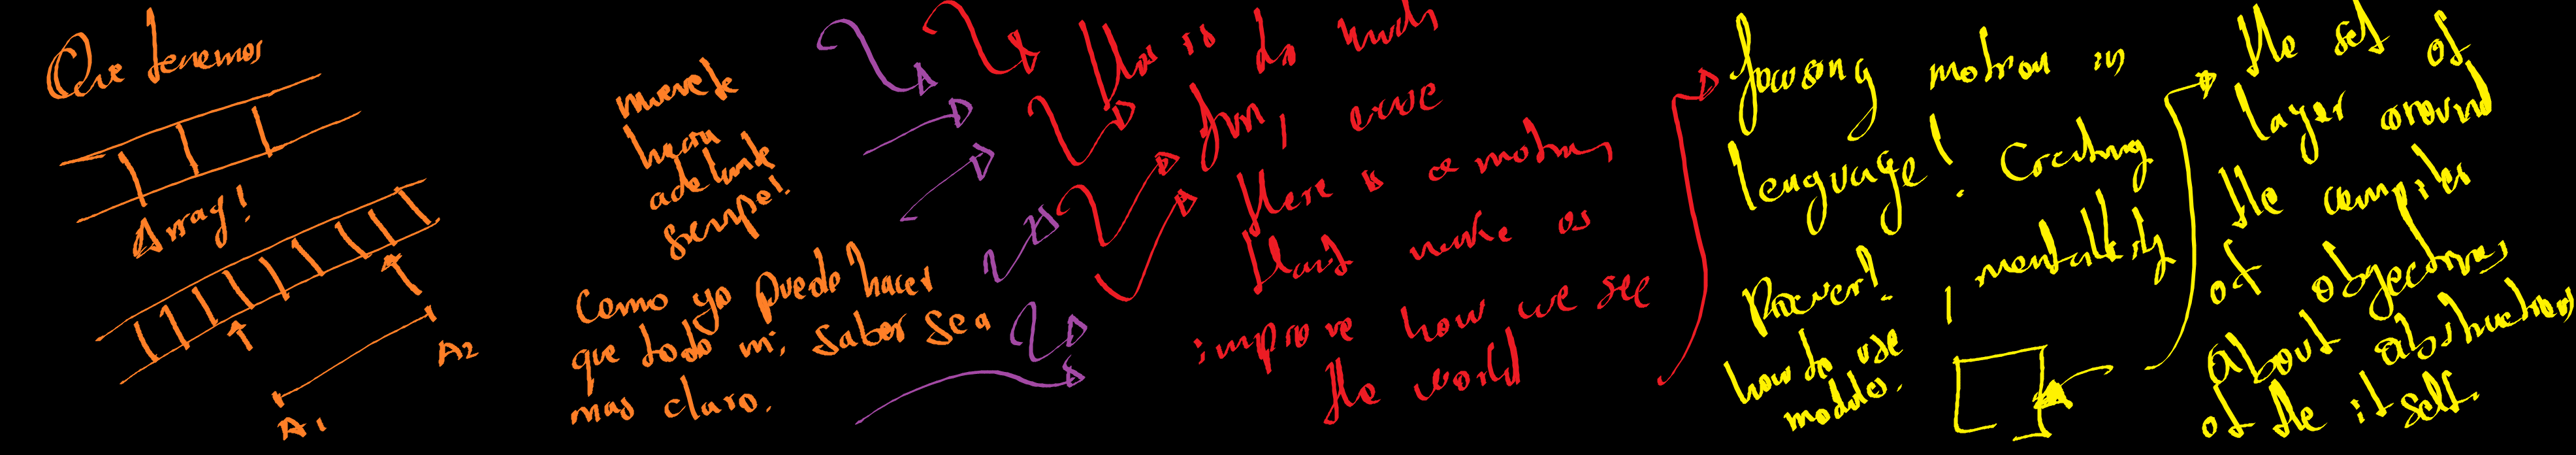 Que tenemos
Array!
A1
A2
muevete
hacia
adelante
siempre!
Como yo puedo hacer
que todo mi saber sea
mas claro.
this is do much
fun,
there is a motion
that make as
improve how we see
the world
focusing motion in
language! Creating
Power! , mentallity
how to use
modules.
the set of
layer around
the compiler
of objectives
about abstraction
of the it self.